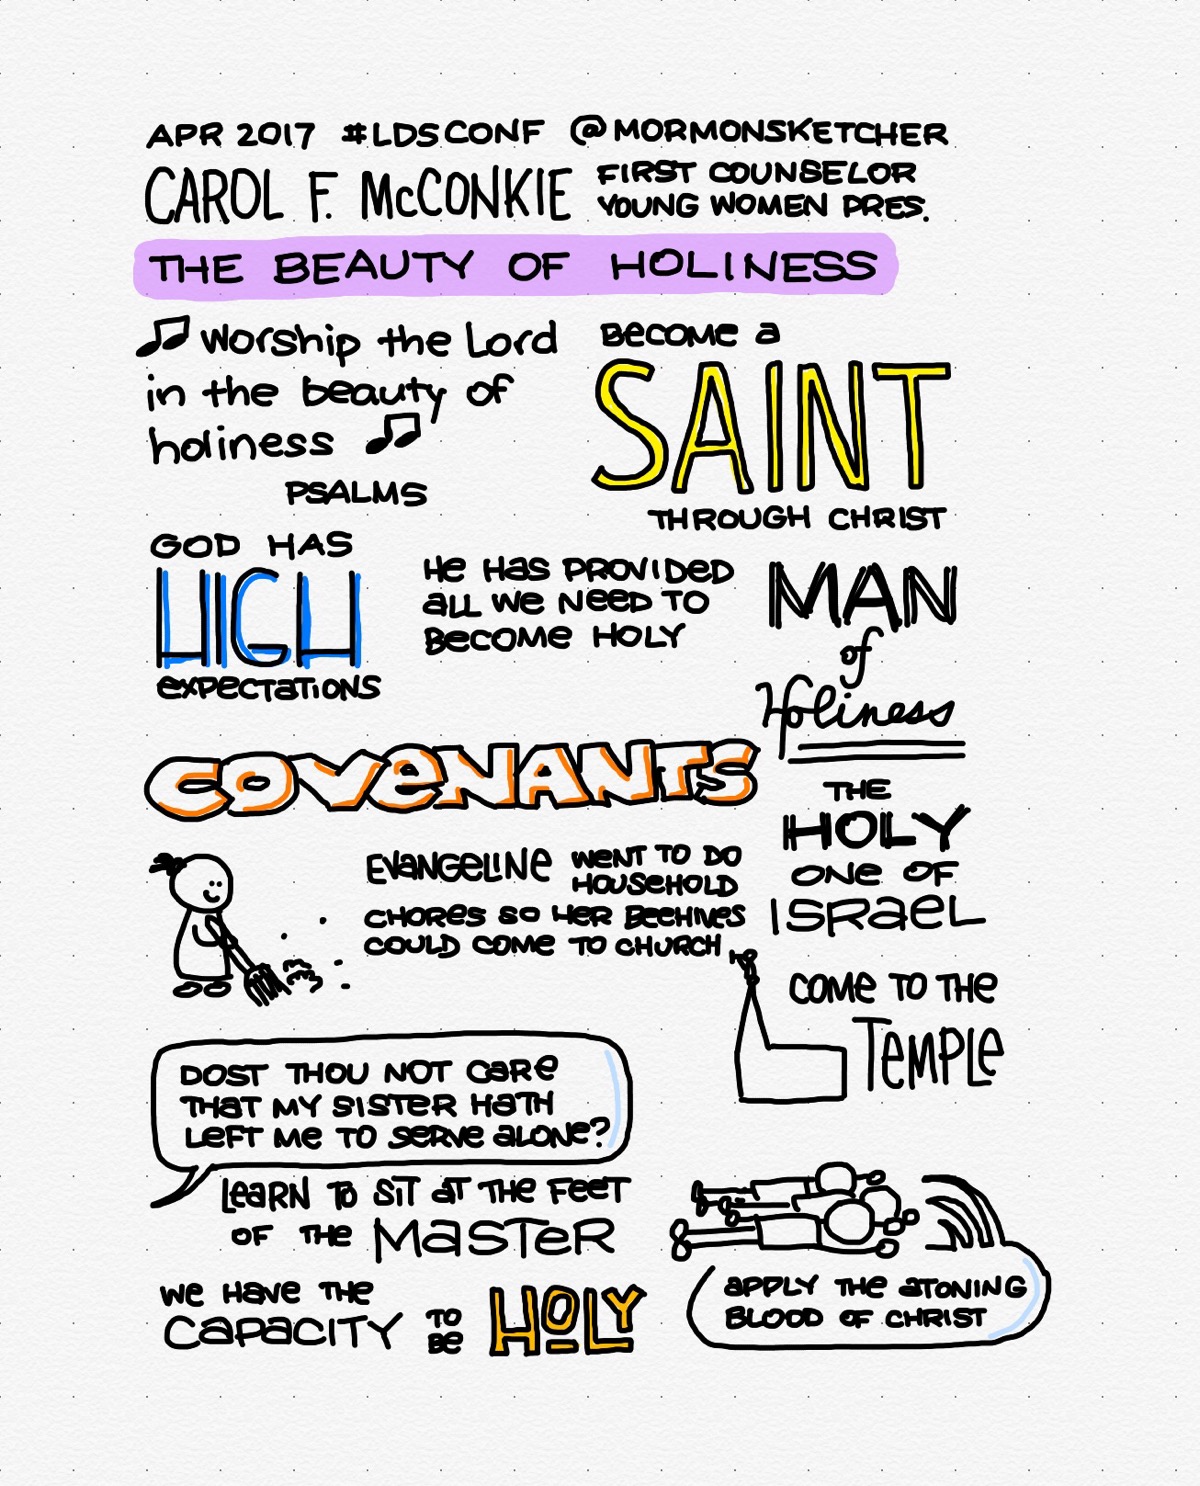 APR 2017 #LDSCONF @MORMONSKETCHER
CAROL F. McCONKIE
FIRST COUNSELOR
YOUNG WOMEN PRES.
THE BEAUTY OF HOLINESS
Worship the Lord
in the beauty of
holiness
PSALMS
BECOME A
SAINT
THROUGH CHRIST
GOD HAS
HIGH
EXPECTATIONS
HE HAS PROVIDED
ALL WE NEED TO
BECOME HOLY
MAN
of
Holiness
COVENANTS
THE
HOLY
ONE OF
ISRAEL
EVANGELINE WENT TO DO
HOUSEHOLD
CHORES SO HER BEEHIVES
COULD COME TO CHURCH
COME TO THE
TEMPLE
DOST THOU NOT CARE
THAT MY SISTER HATH
LEFT ME TO SERVE ALONE?
LEARN TO SIT AT THE FEET
OF THE MASTER
WE HAVE THE
CAPACITY TO
BE
HOLY
APPLY THE ATONING
BLOOD OF CHRIST